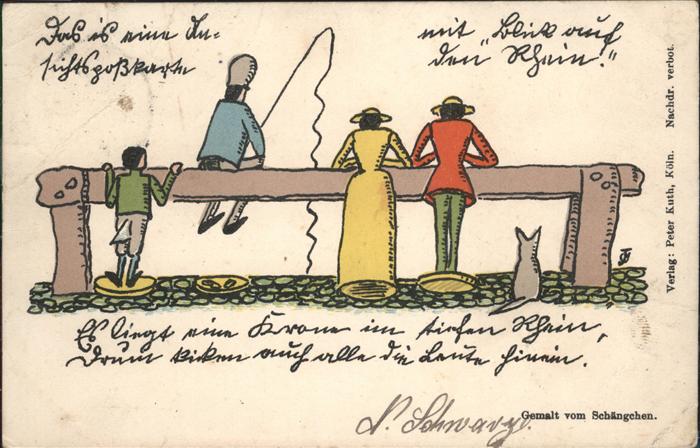 Das is eine An=
sichtspoßkarte
mit „Blick auf
den Rhein!"
Es liegt eine Krone im tiefen Rhein,
Drum kicken auch alle die Leute hinein.
N. Schwarz.
Gemalt vom Schängchen.
Verlag: Peter Kuth, Köln. Nachdr. verbot.